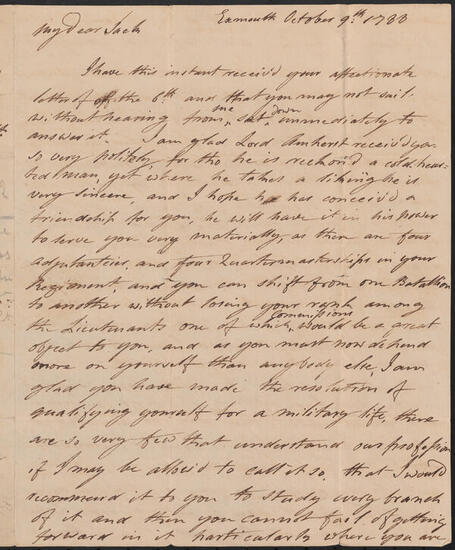 Exmouth October 9th. 1788
My Dear Jack
I have this instant receiv'd your affectionate
letter of the 6th. and that you may not sail
without hearing from me, sat down immediately to
answer it. I am glad Lord Amherst receiv'd you
so very politely, for tho he is reckon'd a cold hear=
ted man, yet where he takes a liking he is
very sincere, and I hope he has conceiv'd a
friendship for you, he will have it in his power
to serve you very materially, as there are four
adjutancies, and four Quartermasterships in your
Regiment, and you can shift from one Batallion
to another without losing your rank among
the Lieutenants one of which Commissions would be a great
object to you, and as you must now depend
more on yourself than anybody else, I am
glad you have made the resolution of
qualifying yourself for a military life, there
are so very few that understand our profession
if I may be allow'd to call it so, that I would
recommend it to you to study every branch
of it and then you cannot fail of getting
forward in it particularly where you are